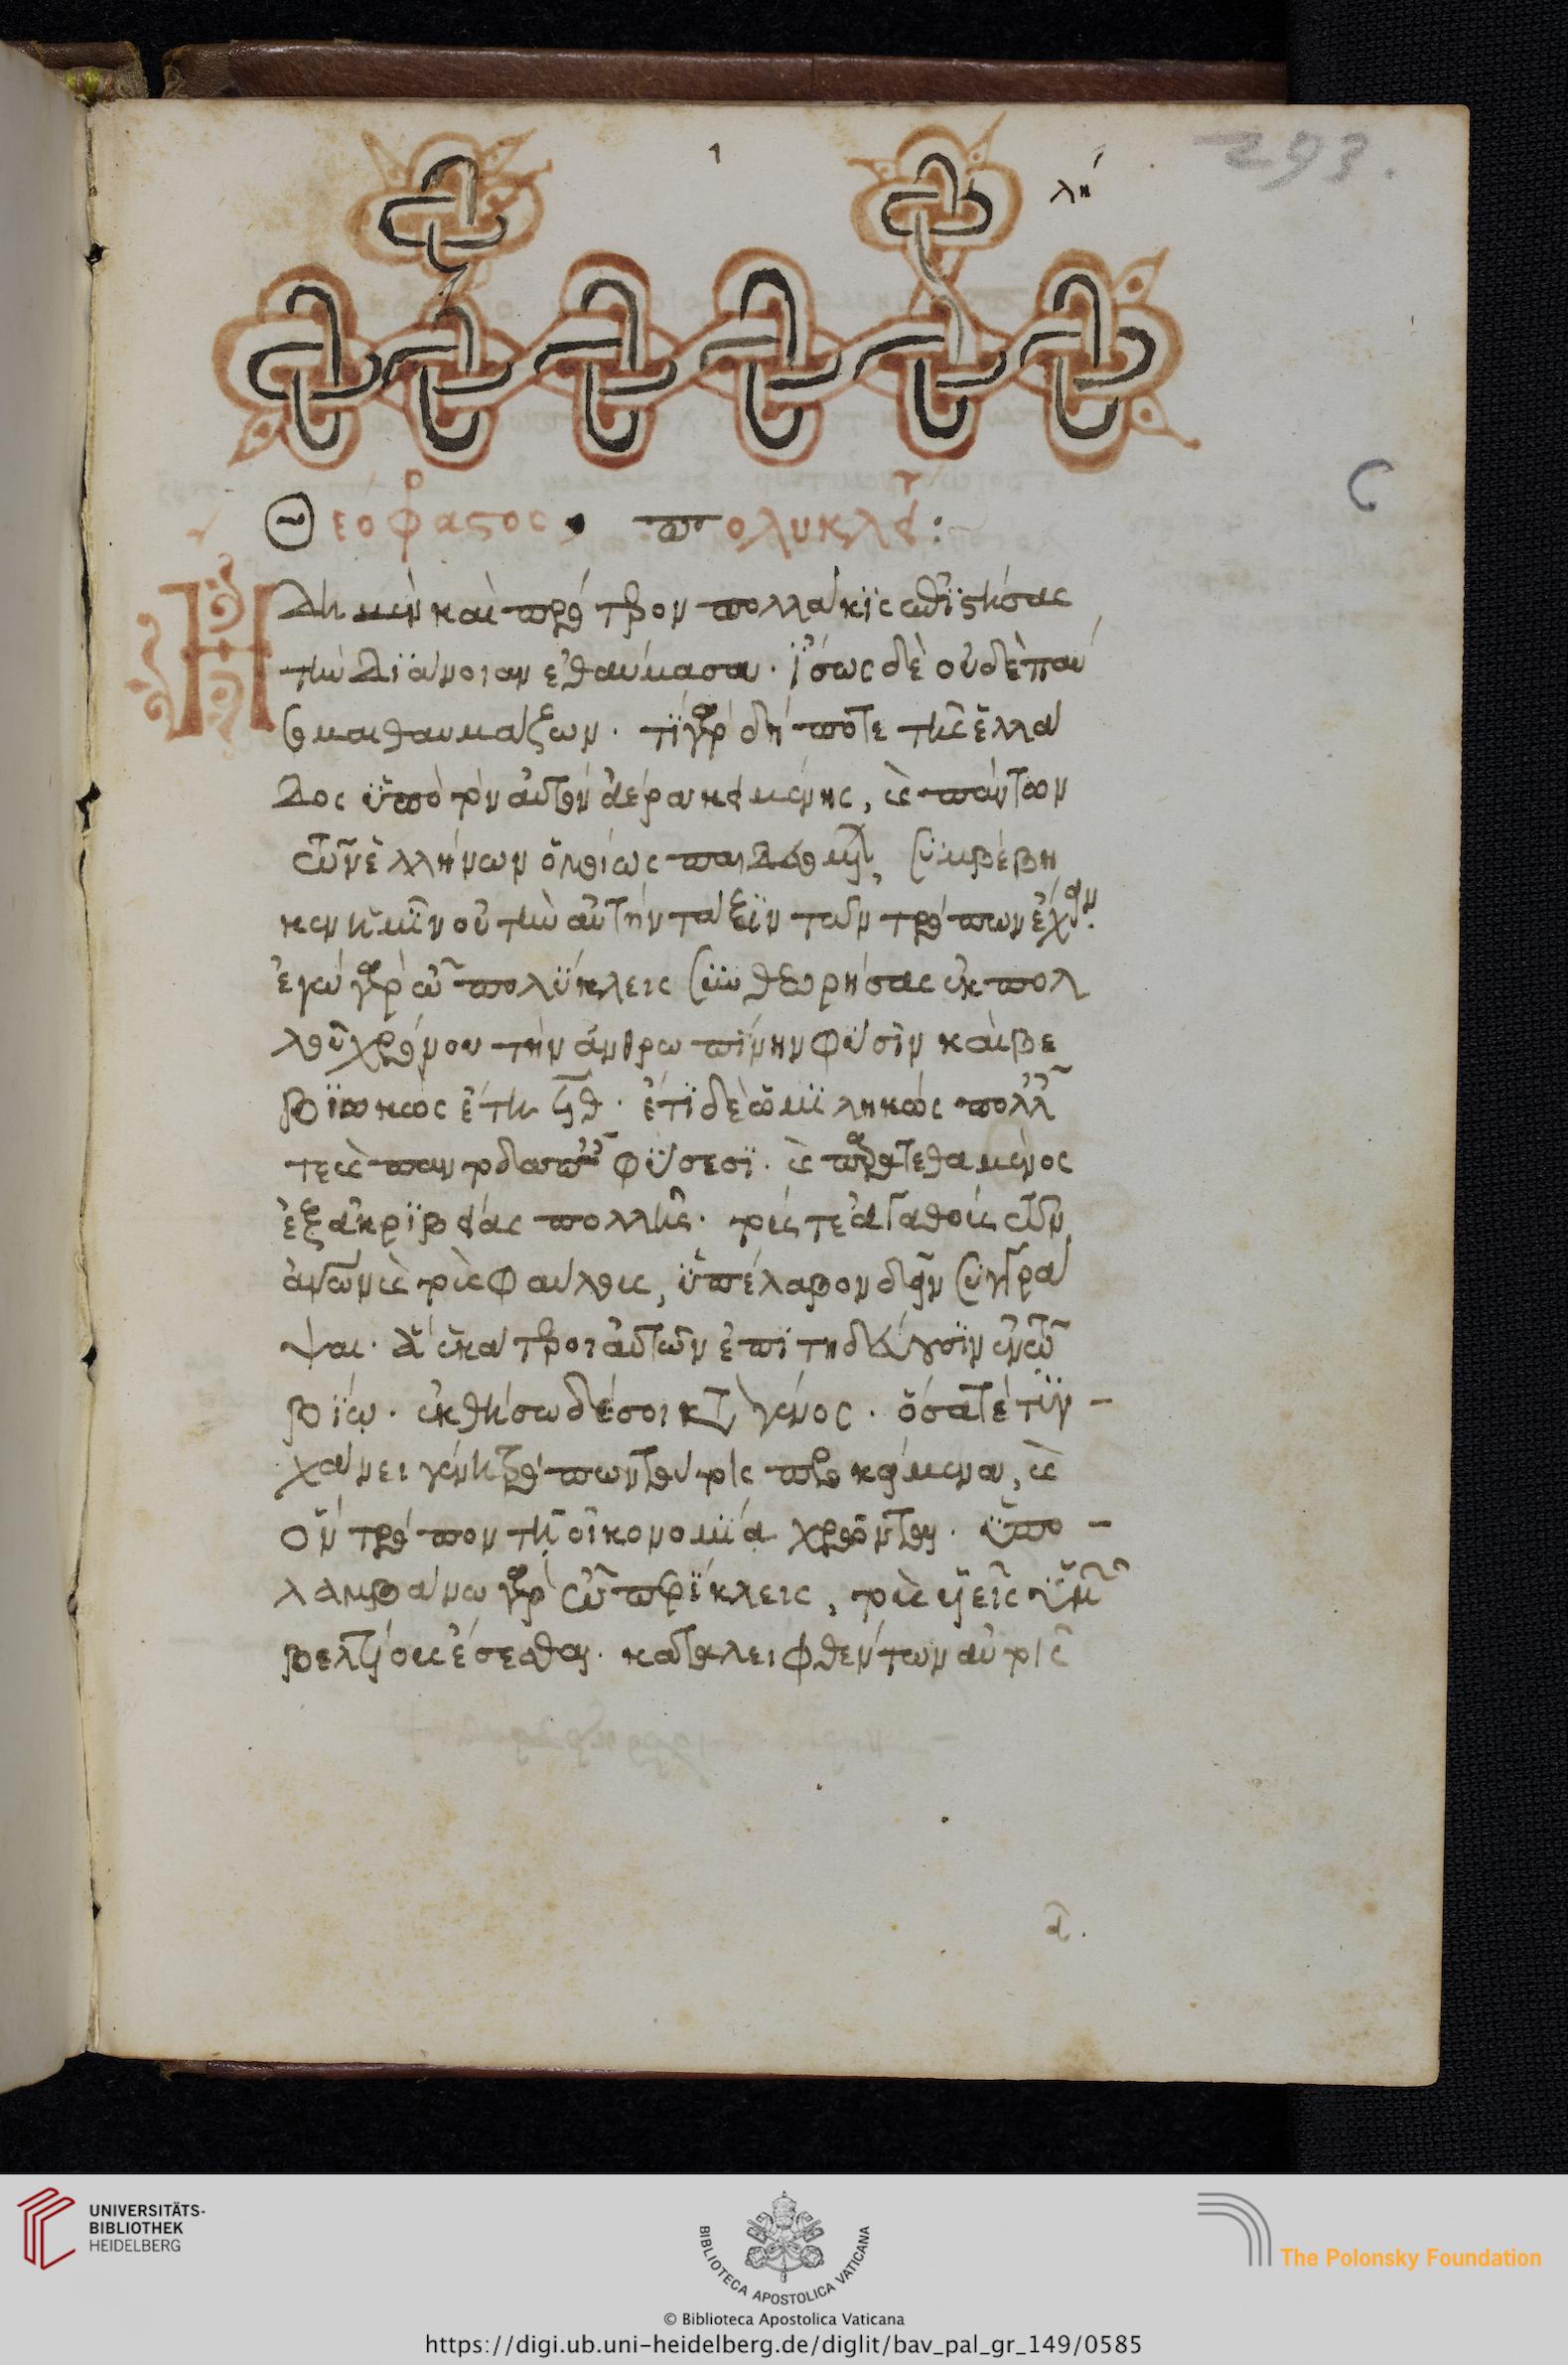 1
λη´
293.
C
Θεόφραστος πολυκλεῖ:
Ἤδη μὲν καὶ πρότερον πολλάκϊς ἐπϊστήσας
τὴν δϊάνοιαν ἐθαύμασα. ἴσως δὲ οὐδὲ παύ
σομαι θαυμάζων. τί γὰρ δήποτε τῆς ἑλλά
δος ὑπὸ τὸν αὐτὸν ἀέρα κειμένης, καὶ πάντων
τῶν ἑλλήνων ὁμοίως παιδευομένων, συμβέβη
κεν ἡμῖν οὐ τὴν αὐτὴν τάξϊν τῶν τρόπων ἔχειν.
ἐγὼ γὰρ ὦ πολύκλεις συνθεωρήσας ἐκ πολ
λοῦ χρόνου τὴν ἀνθρωπίνην φύσϊν καὶ βε
βϊωκὼς ἔτη ϟθ. ἔτϊ δὲ ὡμϊληκὼς πολλαῖς
τε καὶ παντοδαπαῖς φύσεσϊ. καὶ παρατεθεαμένος
ἐξ ἀκρϊβείας πολλῆς. τούς τε ἀγαθοὺς τῶν
ἀνθρώπων καὶ τοὺς φαύλους, ὑπέλαβον δεῖν συγγρά
ψαι. ἃ ἑκάτεροι αὐτῶν ἐπιτηδεύουσϊν ἐν τῷ
βίῳ. ἐκθήσω δέ σοι κατὰ γένος. ὅσα τε τυγ-
χάνει γένη τρόπων τούτοις προκείμενα, καὶ
ὃν τρόπον τῇ οἰκονομίᾳ χρῶνται. ὑπο-
λαμβάνω γὰρ ὦ πολύκλεις, τοὺς υἱεῖς ἡμῶν
βελτίους ἔσεσθαι. καταλειφθέντων αὐτοῖς
α.
UNIVERSITÄTS-
BIBLIOTHEK
HEIDELBERG
BIBLIOTECA APOSTOLICA VATICANA
© Biblioteca Apostolica Vaticana
The Polonsky Foundation
https://digi.ub.uni-heidelberg.de/diglit/bav_pal_gr_149/0585